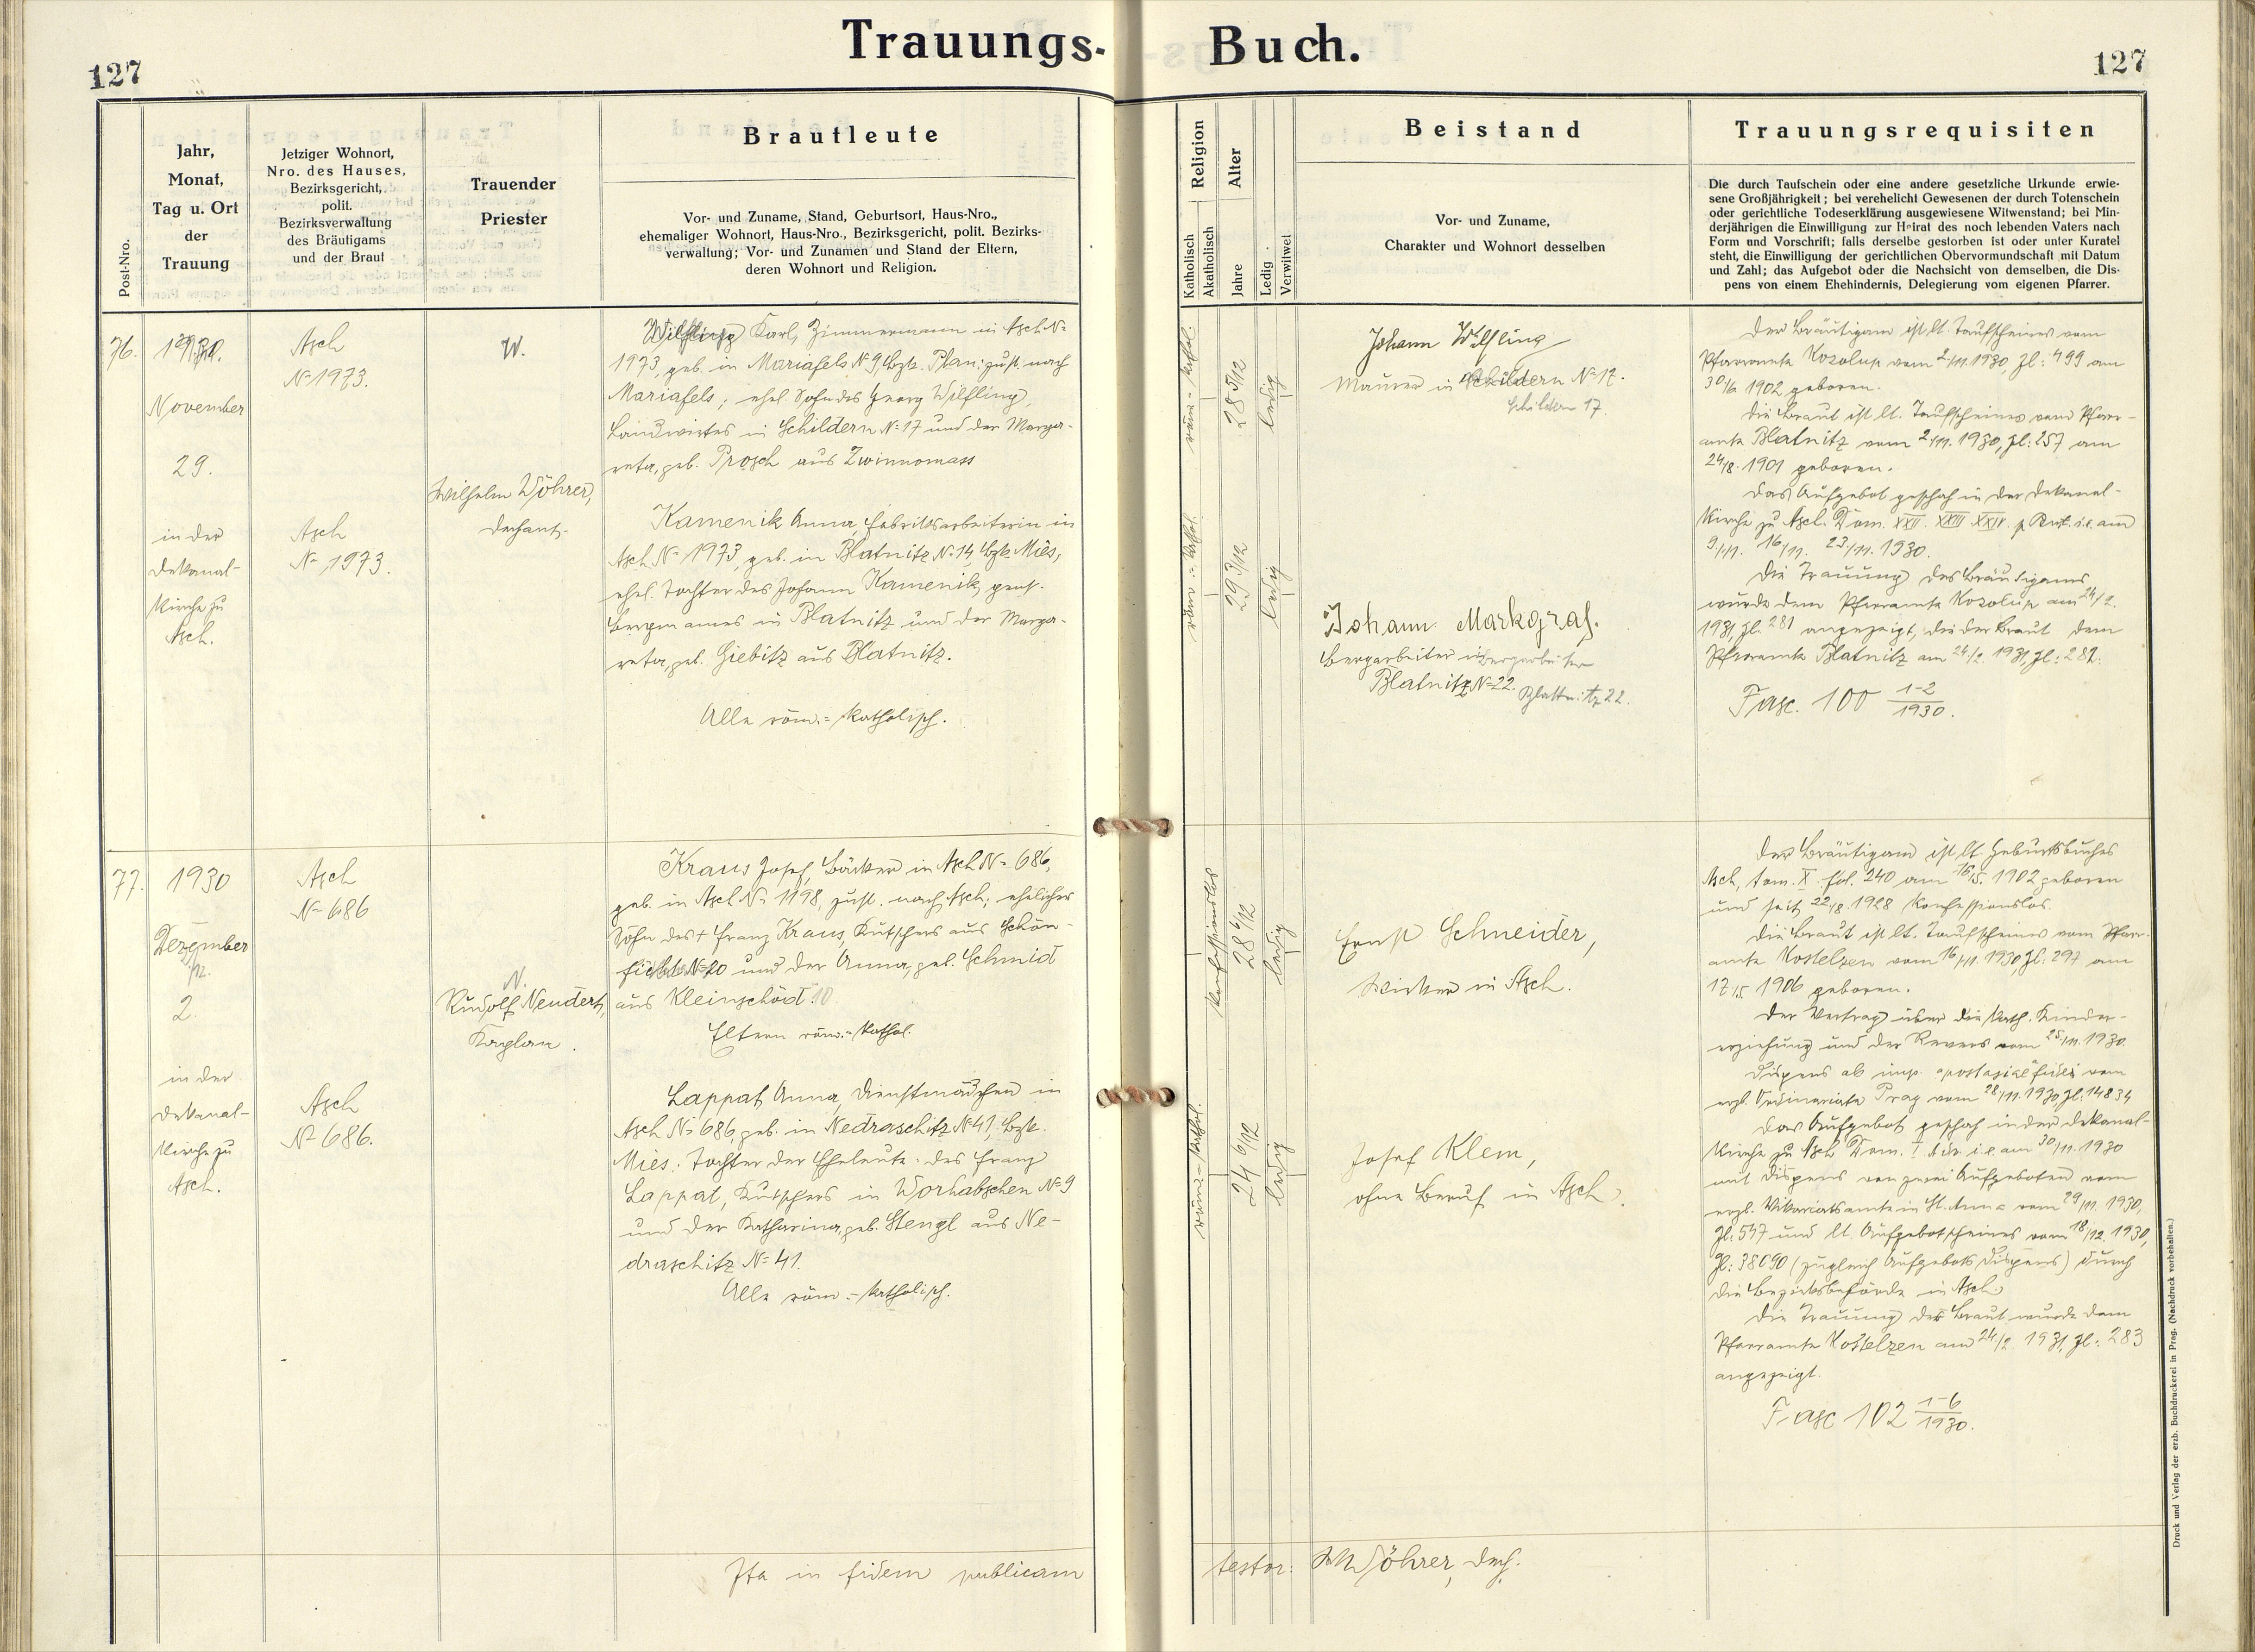 Trauungs- Buch.
127
127
Post-Nro.
Jahr,
Monat,
Tag u. Ort
der
Trauung
Jetziger Wohnort,
Nro. des Hauses,
Bezirksgericht,
polit.
Bezirksverwaltung
des Bräutigams
und der Braut
Trauender
Priester
Brautleute
Vor- und Zuname, Stand, Geburtsort, Haus-Nro.,
ehemaliger Wohnort, Haus-Nro., Bezirksgericht, polit. Bezirks-
verwaltung; Vor- und Zunamen und Stand der Eltern,
deren Wohnort und Religion.
Religion
Katholisch
Akatholisch
Alter
Jahre
Ledig
Verwitwet
Beistand
Vor- und Zuname,
Charakter und Wohnort desselben
Trauungsrequisiten
Die durch Taufschein oder eine andere gesetzliche Urkunde erwie-
sene Großjährigkeit; bei verehelicht Gewesenen der durch Totenschein
oder gerichtliche Todeserklärung ausgewiesene Witwenstand; bei Min-
derjährigen die Einwilligung zur Heirat des noch lebenden Vaters nach
Form und Vorschrift; falls derselbe gestorben ist oder unter Kuratel
steht, die Einwilligung der gerichtlichen Obervormundschaft mit Datum
und Zahl; das Aufgebot oder die Nachsicht von demselben, die Dis-
pens von einem Ehehindernis, Delegierung vom eigenen Pfarrer.
76.
1930.
November
29.
in der
Dekanal-
Kirche zu
Asch.
Asch
No 1973.
Asch
No 1973.
W.
Wilhelm Wöhrer,
Dechant.
Wilfling Karl, Zimmermann in Asch No
1973, geb. in Mariafels No 9, Bzk. Plan; zust. nach
Mariafels; ehel. Sohn des Georg Wilfling,
Landwirtes in Schildern No 17 und der Marga-
reta, geb. Prosch aus Zwinnomass
Kamenik Anna, Fabriksarbeiterin in
Asch No 1973, geb. in Blatnitz No 14, Bzk. Mies,
ehel. Tochter des Johann Kamenik, pens.
Bergmannes in Blatnitz und der Marga-
reta, geb. Giebitz aus Blatnitz.
Alle röm.-katholisch.
röm.-kathol.
28 5/12
ledig
röm.-kathol.
29 3/12
ledig
Johann Wilfling
Maurer in Schildern No 17.
Schildern 17.
Johann Markgraf.
Bergarbeiter in Bergarbeiter
Blatnitz No 22. Blattnitz 22.
Der Bräutigam ist lt. Taufscheines vom
Pfarramte Kosolup vom 2/11. 1930, Zl: 499 am
30/6. 1902 geboren.
Die Braut ist lt. Taufscheines vom Pfarr-
amte Blatnitz vom 2/11. 1930, Zl: 257 am
24/8. 1901 geboren.
Das Aufgebot geschah in der Dekanal-
Kirche zu Asch Dom. XXII. XXIII XXIV. p. Pent. i.e. am
9/11. 16/11. 23/11. 1930.
Die Trauung des Bräutigams
wurde dem Pfarramte Kosolup am 24/2.
1931, Zl. 281 angezeigt, die der Braut dem
Pfarramte Blatnitz am 24/2. 1931, Zl: 282.
Fasc. 100 1-2/1930.
77.
1930
Dezember
12.
2.
in der
Dekanal-
Kirche zu
Asch.
Asch
No 686
Asch
No 686.
N.
Rudolf Neudert,
Kaplan.
Kraus Josef, Bäcker in Asch No 686,
geb. in Asch No 1198, zust. nach Asch; ehelicher
Sohn des + Franz Kraus, Kutschers aus Schön-
ficht No 20 und der Anna, geb. Schmid
aus Kleinschöd 10.
Eltern röm.-kathol.
Lappat Anna, Dienstmädchen in
Asch No 686, geb. in Nedraschitz No 41, Bzk.
Mies. Tochter der Eheleute: des Franz
Lappat, Kutschers in Worhabschen No 9
und der Katharina, geb. Stengl aus Ne-
draschitz No 41.
Alle röm.-katholisch.
konfessionslos
28 6/12
ledig
röm.-kathol.
24 6/12
ledig
Ernst Schneider,
Wirker in Asch.
Josef Klem,
ohne Beruf in Asch.
Der Bräutigam ist lt. Geburtsbuches
Asch, tom. X. fol. 240 am 16/5. 1902 geboren
und seit 22/8. 1928 konfessionslos.
Die Braut ist lt. Taufscheines vom Pfarr-
amte Kostelzen vom 16/11. 1930, Zl: 297 am
17/5. 1906 geboren.
Der Vertrag über die kath. Kinder-
erziehung und der Revers vom 25/11. 1930.
Dispens ab imp. apostasiae a fidei vom
erzb. Ordinariate Prag vom 28/11. 1930, Zl: 14834
Das Aufgebot geschah in der Dekanal-
Kirche zu Asch Dom. I. Adv. i.e. am 30/11. 1930
mit Dispens von zwei Aufgeboten vom
erzb. Vikariatsamte in St. Anna vom 29/11. 1930,
Zl: 547 und lt. Aufgebotscheines vom 18/12. 1930,
Zl: 38090 (zugleich Aufgebots Dispens) durch
die Bezirksbehörde in Asch.
Die Trauung der Braut wurde dem
Pfarramte Kostelzen am 24/2. 1931, Zl: 283
angezeigt.
Fasc 102 1-6/1930.
Ita in fidem publicam testor: W. Wöhrer, Dech.
Druck und Verlag der erzb. Buchdruckerei in Prag. (Nachdruck vorbehalten.)